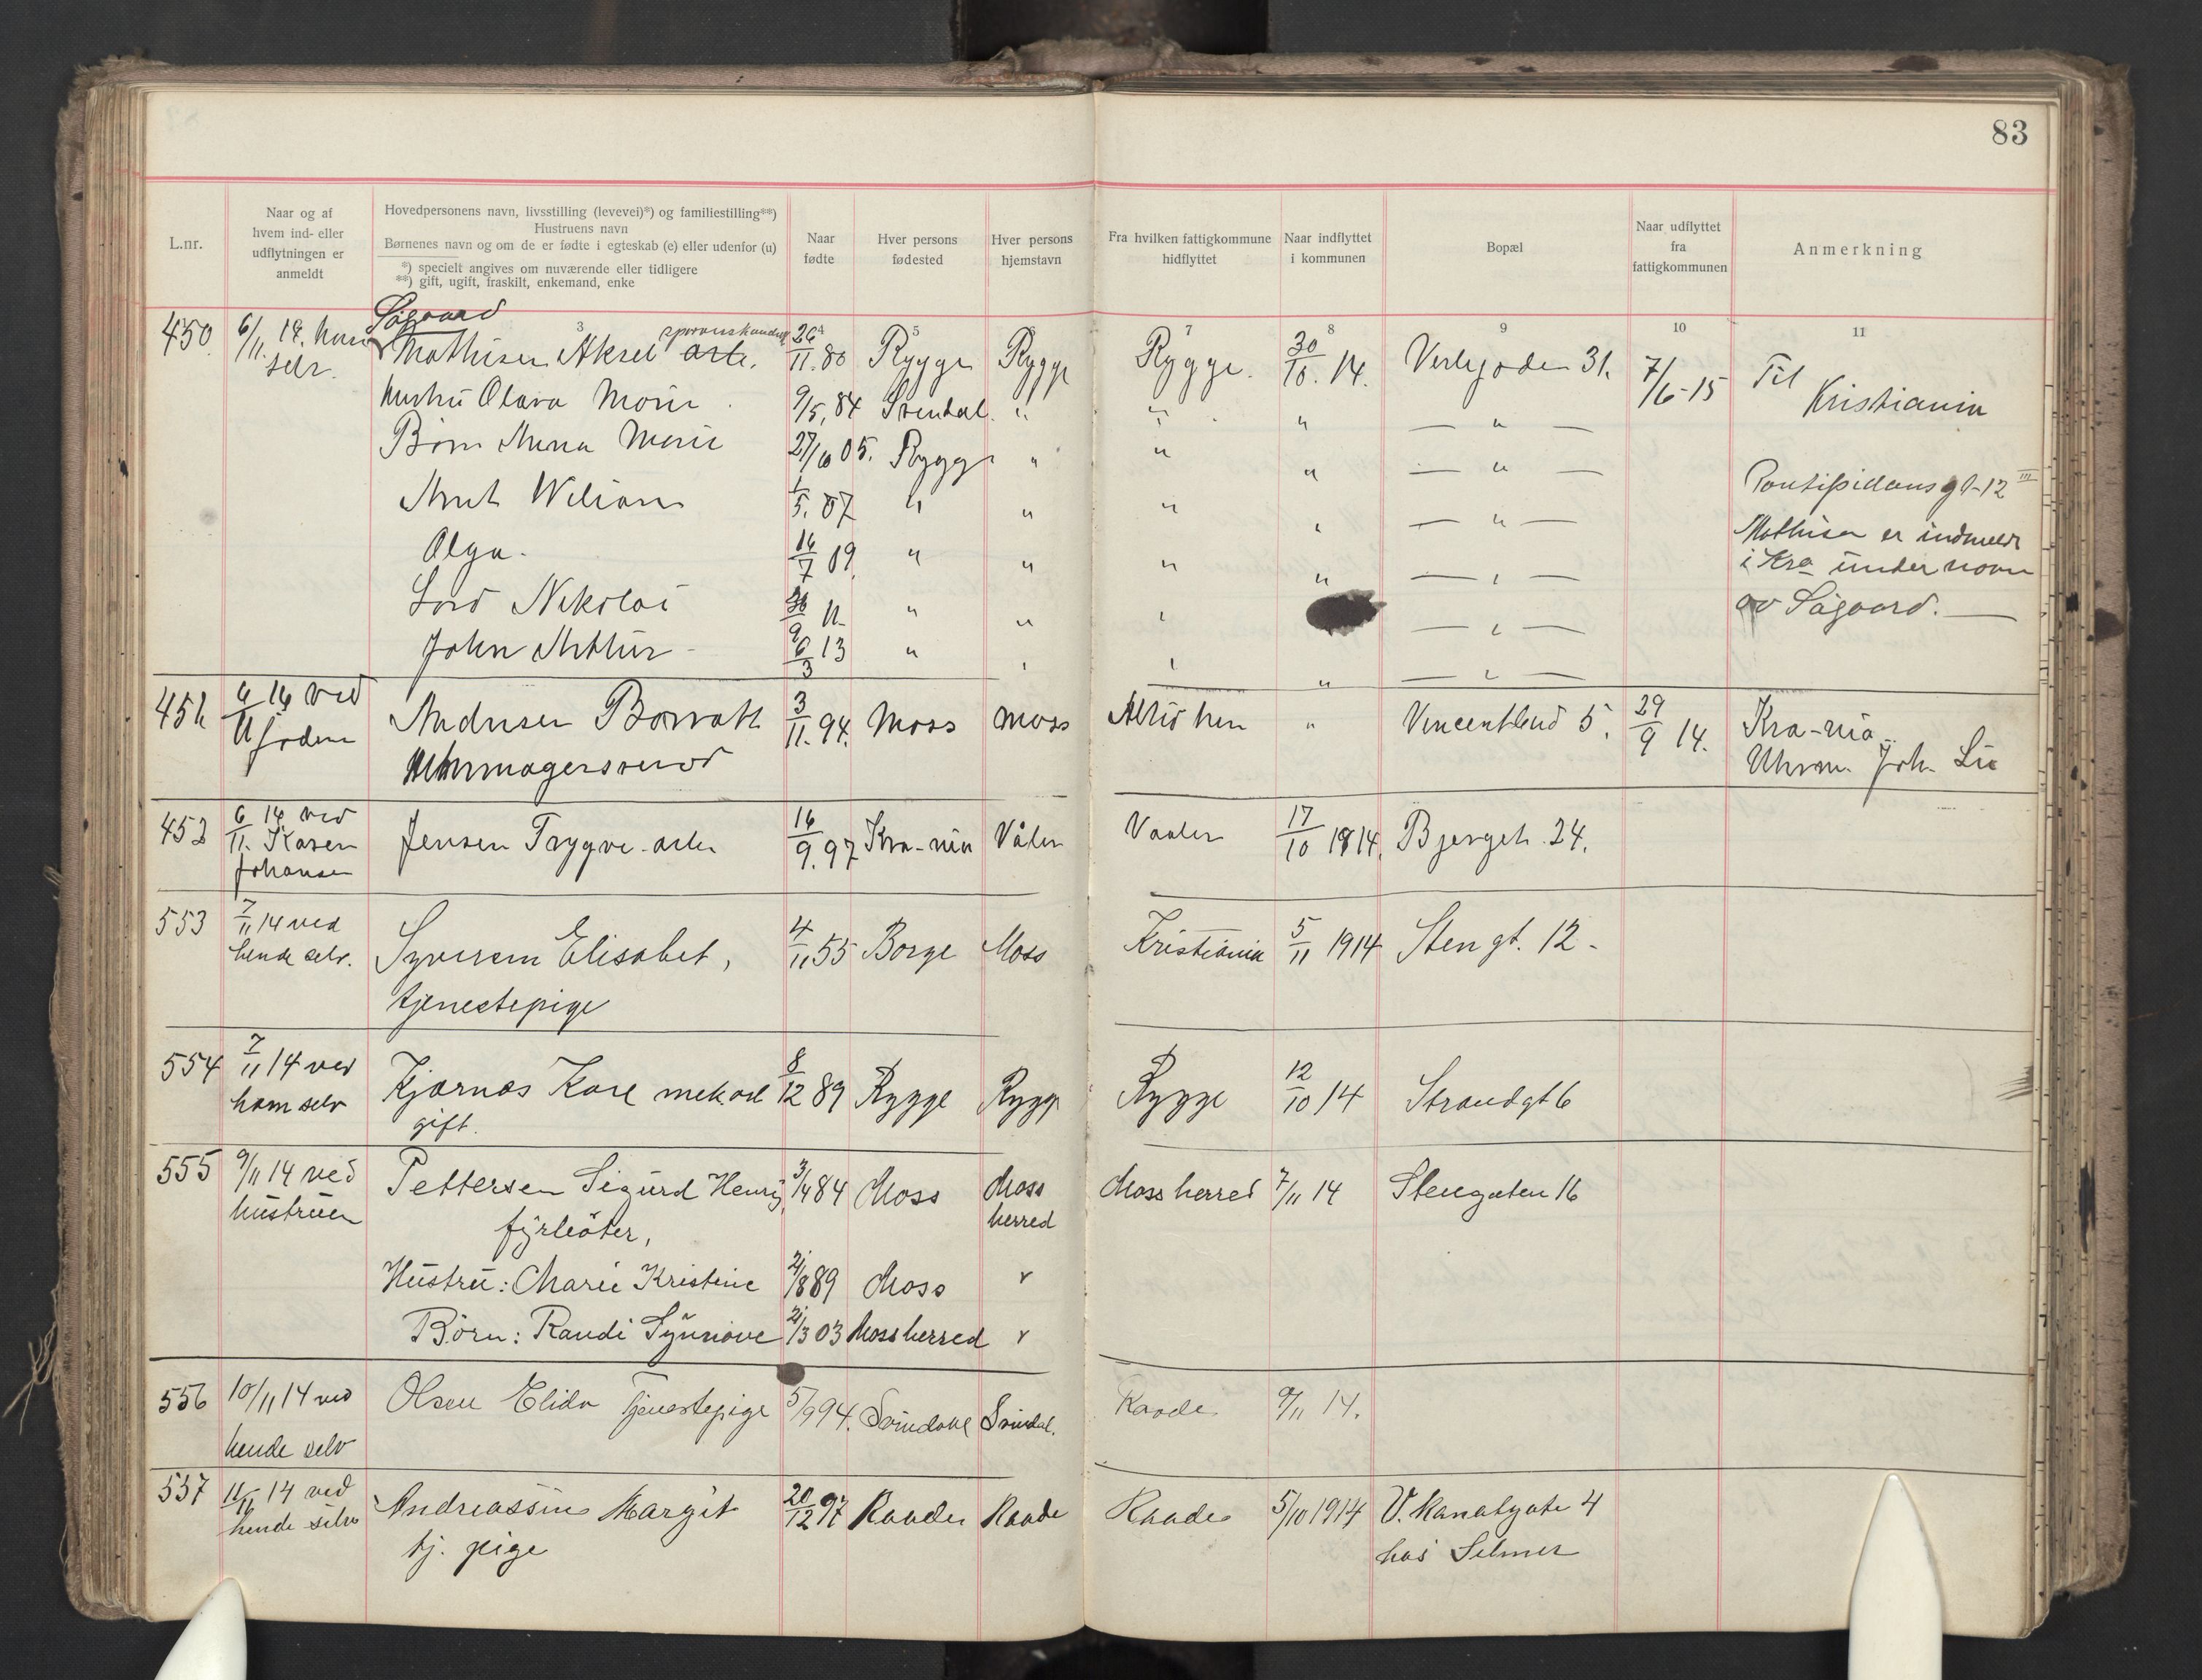 83
L.nr.
Naar og af
hvem ind- eller
udflytningen er
anmeldt
Hovedpersonens navn, livsstilling (levevei)*) og familiestilling**)
Hustruens navn
Børnenes navn og om de er fødte i egteskab (e) eller udenfor (u)
*) specielt angives om nuværende eller tidligere
**) gift, ugift, fraskilt, enkemand, enke
Naar
fødte
Hver persons
fødested
Hver persons
hjemstavn
Fra hvilken fattigkommune
hidflyttet
Naar indflyttet
i kommunen
Bopæl
Naar udflyttet
fra
fattigkommunen
Anmerkning
3 4 5 6 7 8 9 10 11
Sögaard
450 6/11. 14. ham Mathisen Aksel arb. 26/11. 80 Rygge Rygge Rygge. 30/10. 14. Verlegaden 31. 7/6-15 Til
selv. Kristiania
Hustru Olava Marie 9/5. 84 Svindal. " " " — " —
Børn Anna Marie 27/10 05. Rygge " " " — " —
Arnt Wiliam 1/5. 07 " " " " — " —
Olga. 14/7 09 " " " " — " —
Lars Nikolai 11 " " " — " —
John Arthur 6/3 13 " " " " — " —
gt-12 III
Mathisen er indmeldt
i Kra under navn
av Sågaard. —
451 6/11 14 ved Andresen Borvatt 3/11. 94. Moss Moss Altid her " Vincentbud 5. 29/9 14. Kra-nia
Uhrmagersvend Uhrm. Joh. Lie
452 6/11. 14 ved Jensen Trygve. arb. 16/9. 97 Kra-nia Våler Vaaler 17/10 1914. Bjerget. 24.
Karen
Johansen
553 7/11 14 ved Syversen Elisabet, 4/11 55 Borge Moss Kristiania 5/11 1914 Stengt. 12 -
hende selv. tjenestepige
554 7/11 14 ved Kjærnæs Karl mek.arb 8/12 89 Rygge Rygge Rygge 12/10 14 Strandgt 6
ham selv gift.
555 9/11 14 ved Pettersen Sigurd Henry, 3/4 84 Moss Moss Mossherred 7/11 14 Stengaten 16
hustruen fyrbøter, herred
Hustru: Marie Kristine 21/8 89 Moss "
Børn: Randi Synnøve 21/3 03 Mossherred "
556 10/11 14 ved Olsen Elida Tjenestepige 5/9 94. Svindal Svindal. Raade 9/11 14.
hende selv
557 11/11 14 ved Andreassen Margit 20/12 97 Raade Raade Raade 5/10 1914 V. Kanalgate 4
hende selv tj. pige hos Selmer